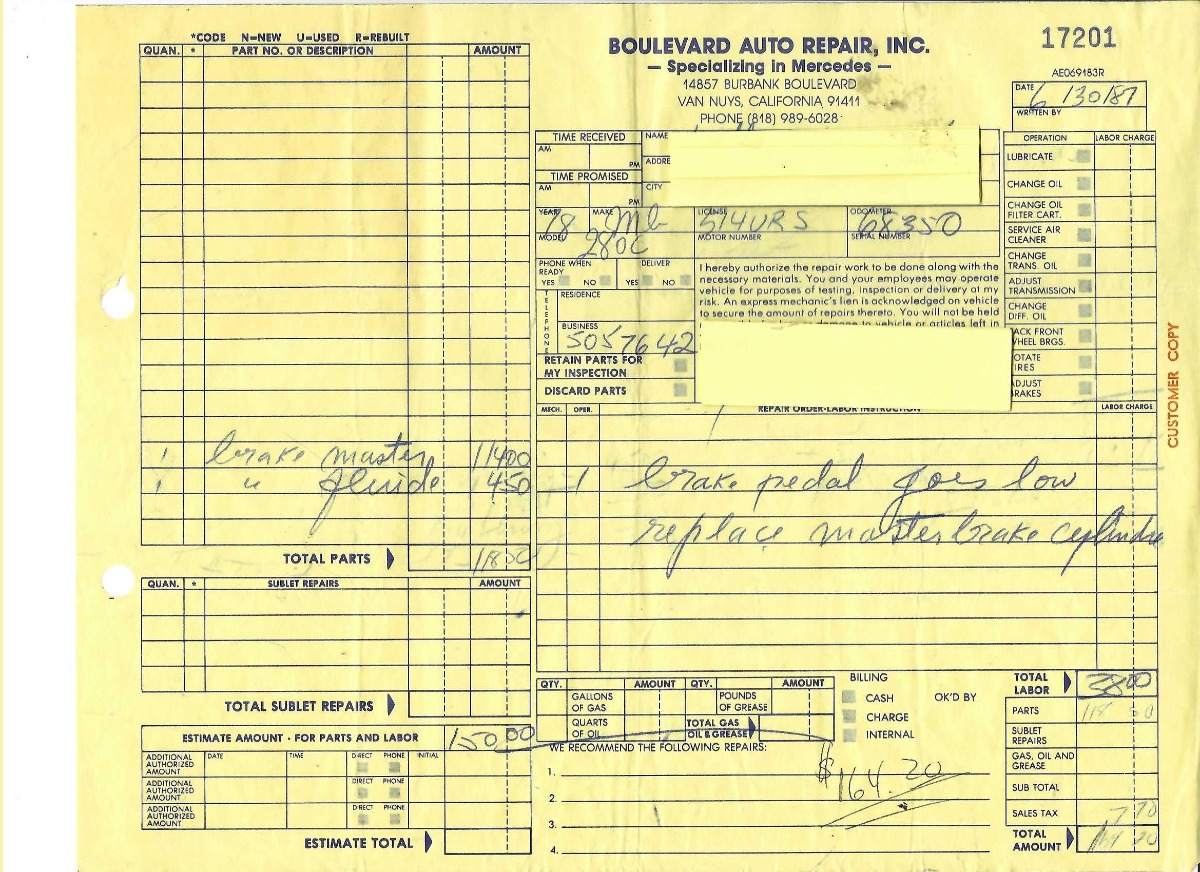 *CODE N=NEW U=USED R=REBUILT
QUAN. * PART NO. OR DESCRIPTION AMOUNT
1 brake master 11400
1 " fluide 450
TOTAL PARTS 11850
QUAN. * SUBLET REPAIRS AMOUNT
TOTAL SUBLET REPAIRS
ESTIMATE AMOUNT - FOR PARTS AND LABOR 150.00
ADDITIONAL AUTHORIZED AMOUNT DATE TIME DIRECT PHONE INITIAL
ADDITIONAL AUTHORIZED AMOUNT DIRECT PHONE
ADDITIONAL AUTHORIZED AMOUNT DIRECT PHONE
ESTIMATE TOTAL
BOULEVARD AUTO REPAIR, INC.
— Specializing in Mercedes —
14857 BURBANK BOULEVARD
VAN NUYS, CALIFORNIA 91411
PHONE (818) 989-6028
17201
AE069183R
DATE 6/30/87
WRITTEN BY
TIME RECEIVED
AM
PM
TIME PROMISED
AM
PM
NAME
ADDRE
CITY
YEAR 78 MAKE Mb LICENSE 514URS ODOMETER 68350
MODEL 280C MOTOR NUMBER SERIAL NUMBER
PHONE WHEN READY YES NO
DELIVER YES NO
TELEPHONE
RESIDENCE
BUSINESS
5057642
RETAIN PARTS FOR
MY INSPECTION
DISCARD PARTS
I hereby authorize the repair work to be done along with the
necessary materials. You and your employees may operate
vehicle for purposes of testing, inspection or delivery at my
risk. An express mechanic's lien is acknowledged on vehicle
to secure the amount of repairs thereto. You will not be held
damage to vehicle or articles left in
OPERATION LABOR CHARGE
LUBRICATE
CHANGE OIL
CHANGE OIL
FILTER CART.
SERVICE AIR
CLEANER
CHANGE
TRANS. OIL
ADJUST
TRANSMISSION
CHANGE
DIFF. OIL
ACK FRONT
HEEL BRGS.
OTATE
IRES
ADJUST
BRAKES
CUSTOMER COPY
MECH. OPER. REPAIR ORDER-LABOR INSTRUCTION LABOR CHARGE
1 brake pedal goes low
replace master brake cylindre
QTY. AMOUNT QTY. AMOUNT
GALLONS OF GAS POUNDS OF GREASE
QUARTS OF OIL TOTAL GAS OIL & GREASE
BILLING
CASH OK'D BY
CHARGE
INTERNAL
WE RECOMMEND THE FOLLOWING REPAIRS:
1.
2.
3.
4.
$164.20
TOTAL LABOR 3800
PARTS 118 50
SUBLET REPAIRS
GAS, OIL AND GREASE
SUB TOTAL
SALES TAX 7 70
TOTAL AMOUNT 164 20